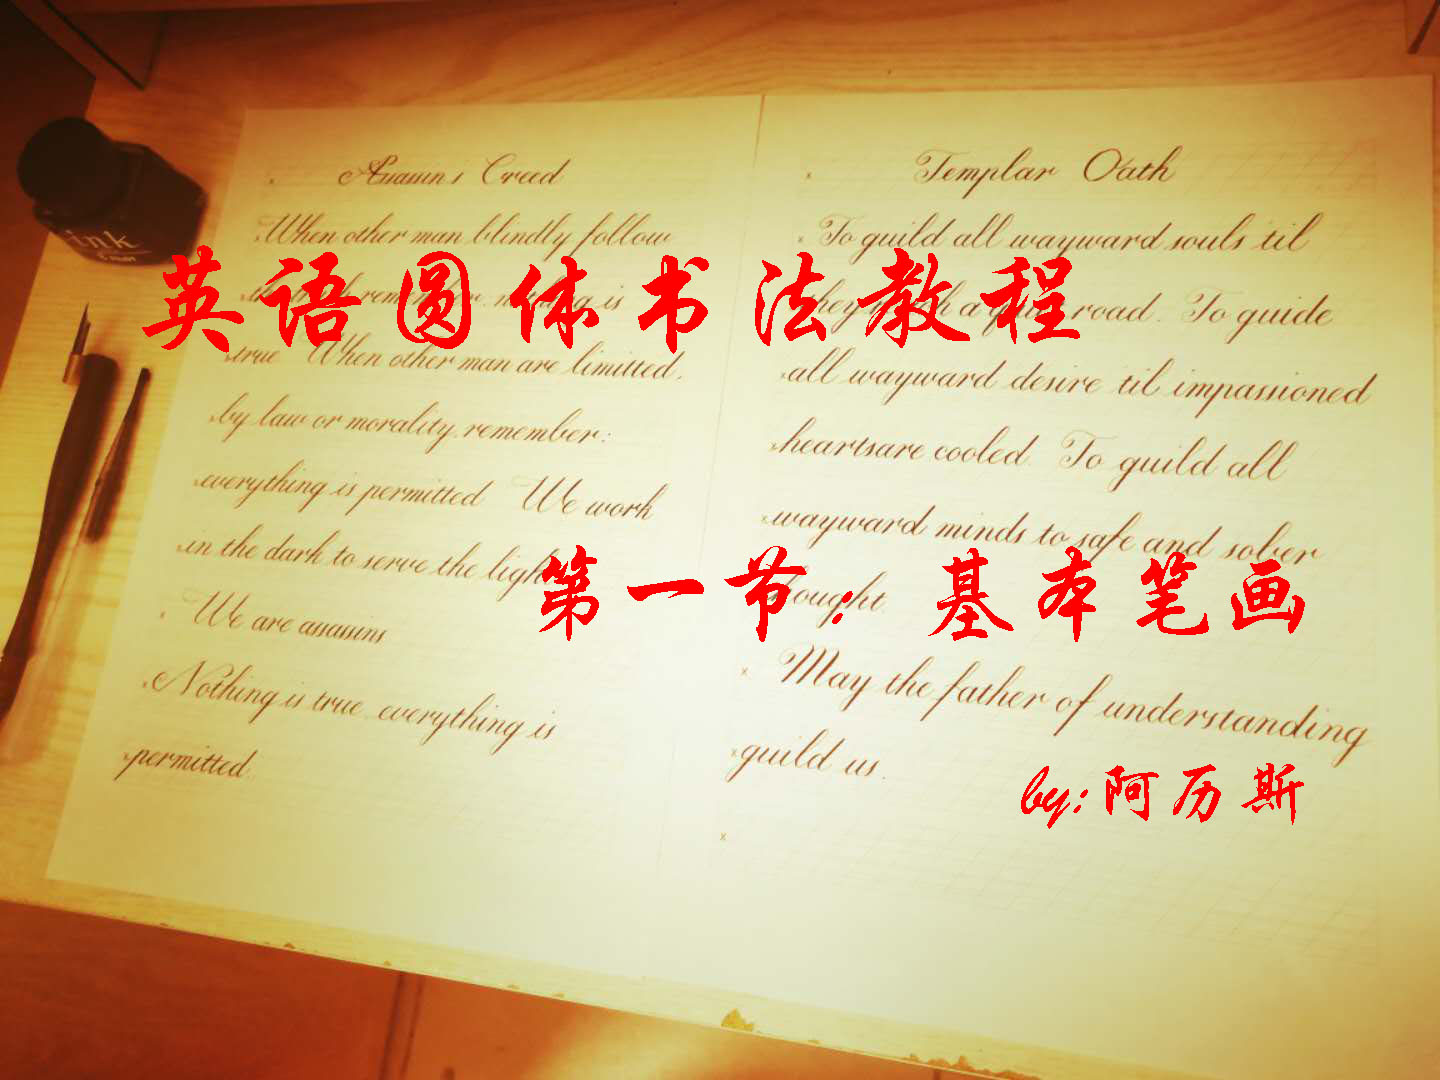 英语圆体书法教程
第一节：基本笔画
by:阿历斯
ink
Assassin's Creed
When other man blindly follow
the remember, nothing is
true When other man are limitted,
by law or morality, remember:
everything is permitted We work
in the dark to serve the light
We are assassins
Nothing is true everything is
permitted.
Templar Oath
To guild all wayward souls til
they a road. To guide
all wayward desire til impassioned
heartsare cooled. To guild all
wayward minds to safe and sober
thought.
May the father of understanding
guild us.